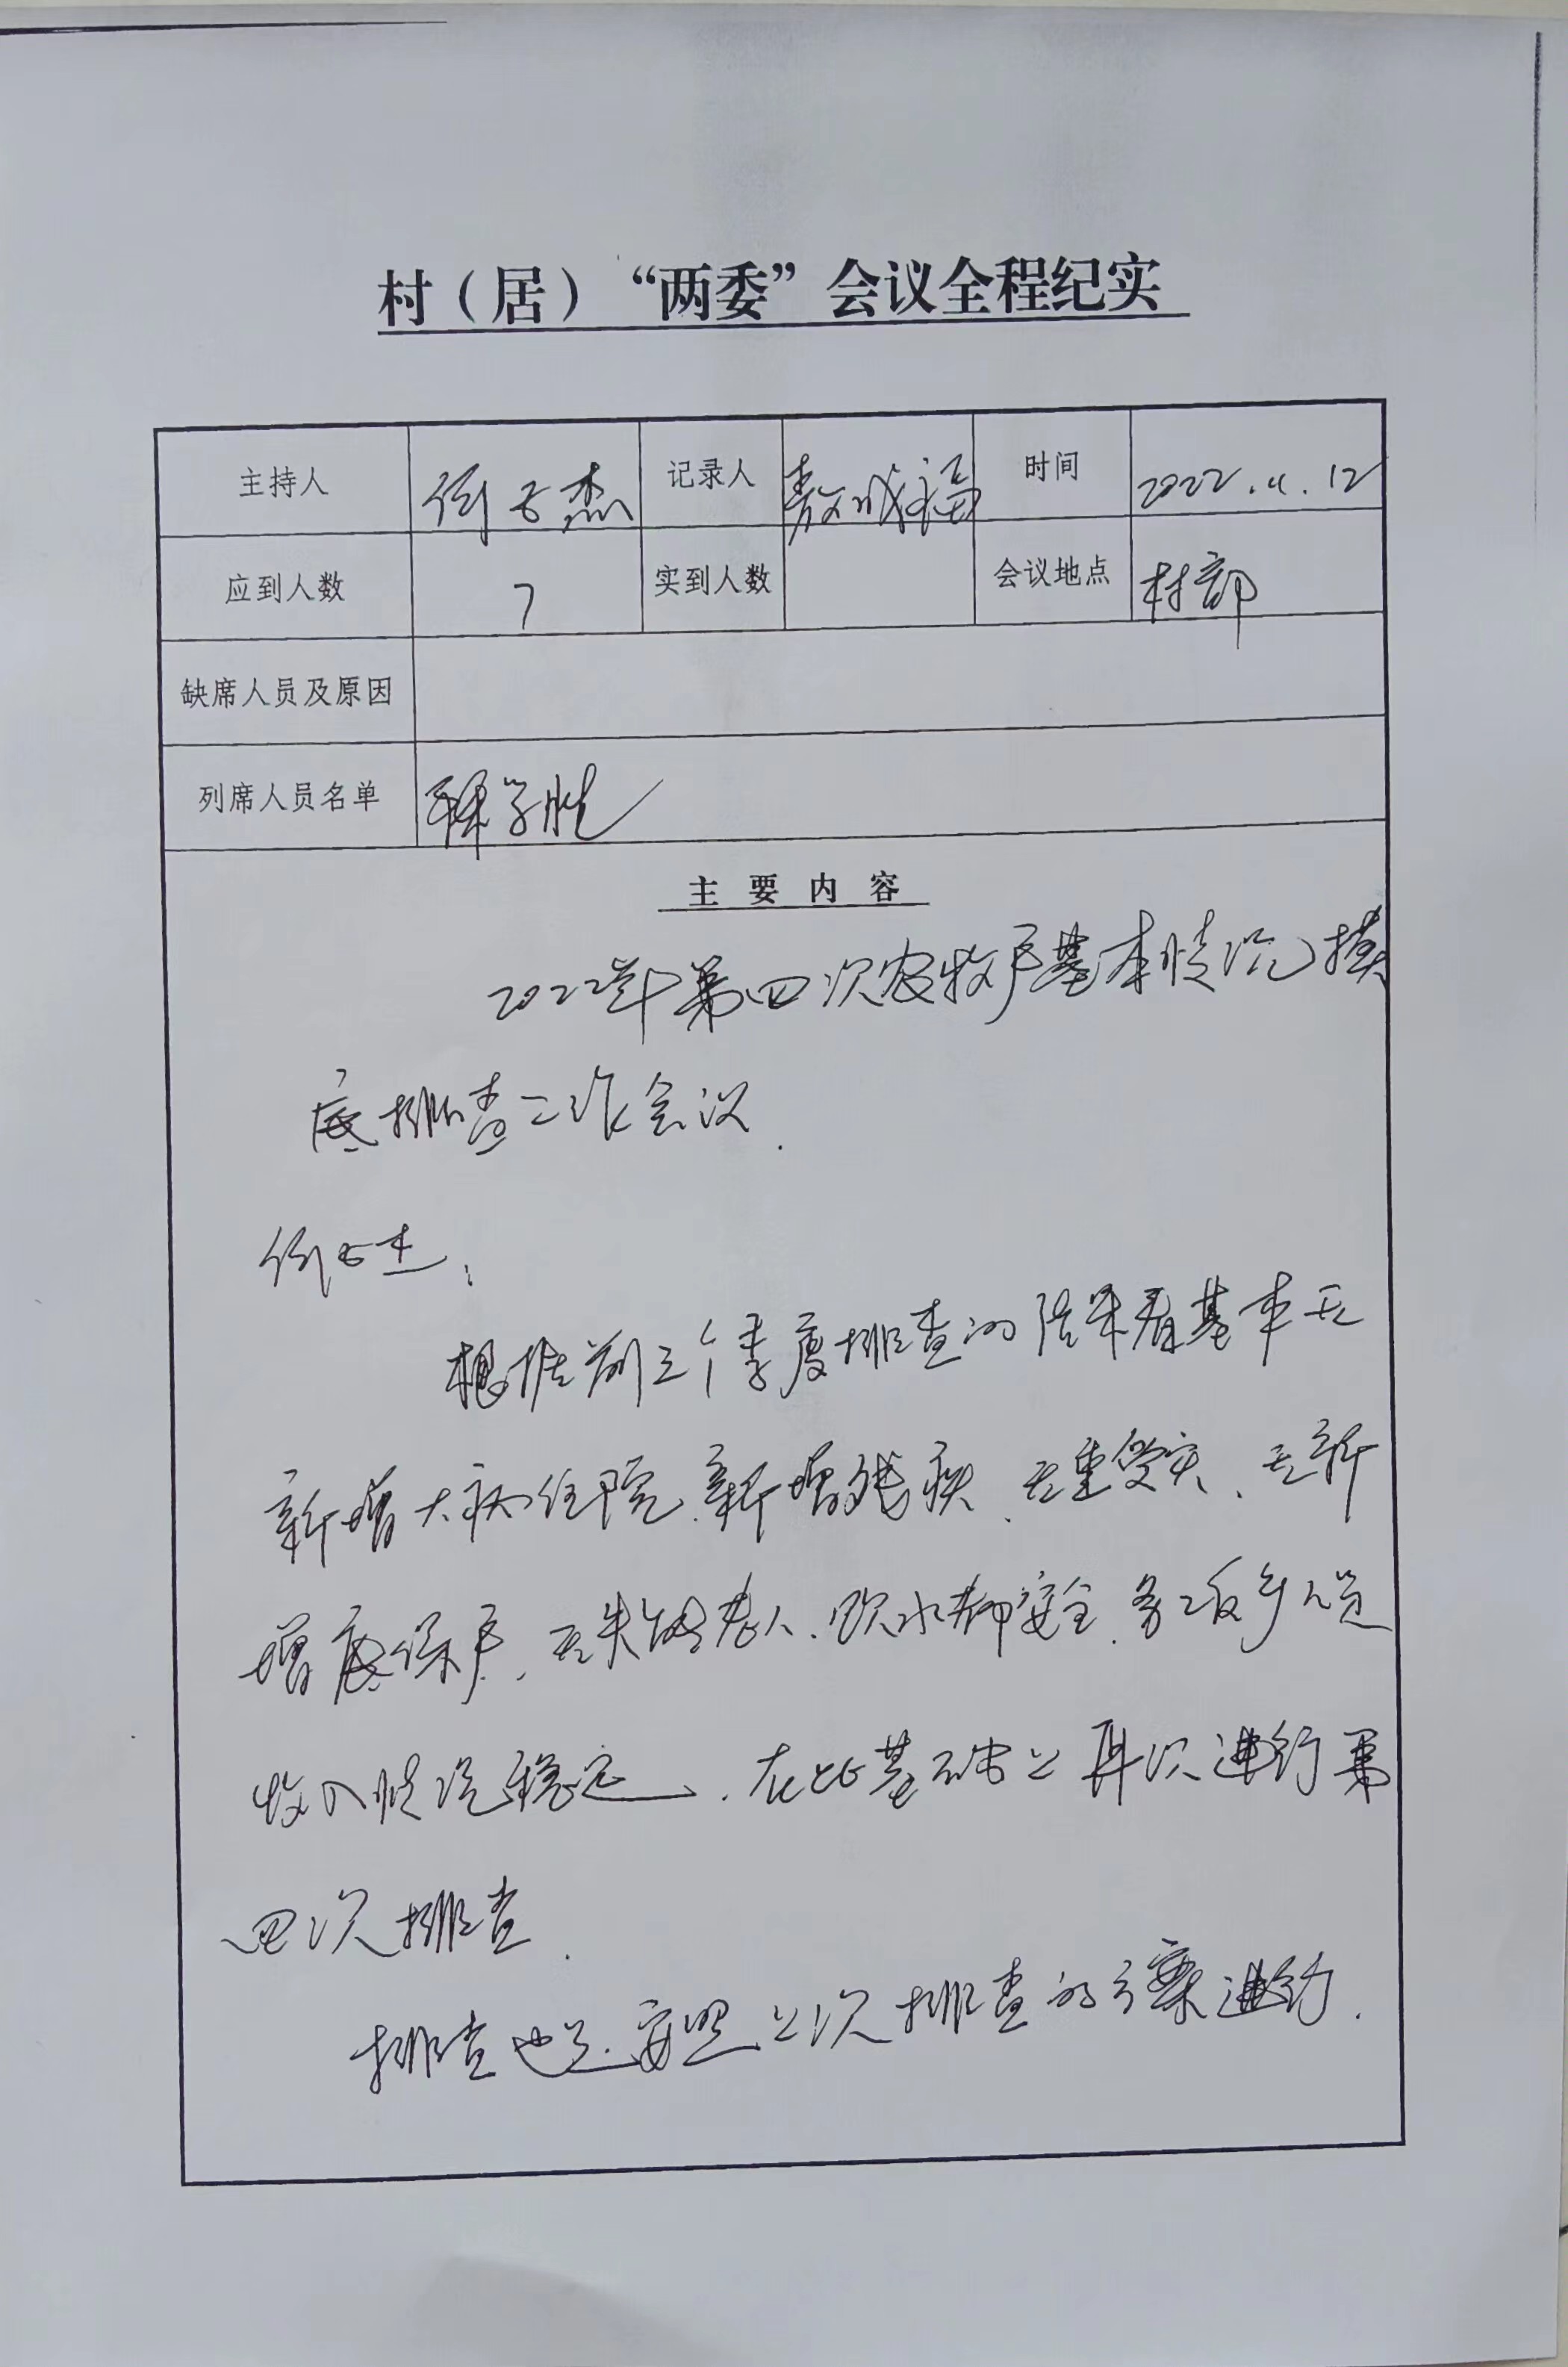 村（居）“两委”会议全程纪实
主持人 记录人 敖成福 时间 2022.11.12
应到人数 7 实到人数 会议地点 村部
缺席人员及原因
列席人员名单
主要内容
2022年第四次农牧户基本情况摸
底排查工作会议.
根据前三个季度排查的结果看基本无
新增大病住院、新增残疾、无重受灾、无新
增底保户、无失能老人、饮水都安全、务工返乡人员
收入情况稳定、在此基础上再次进行第
四次排查.
排查也是按照上次排查的方案进行.